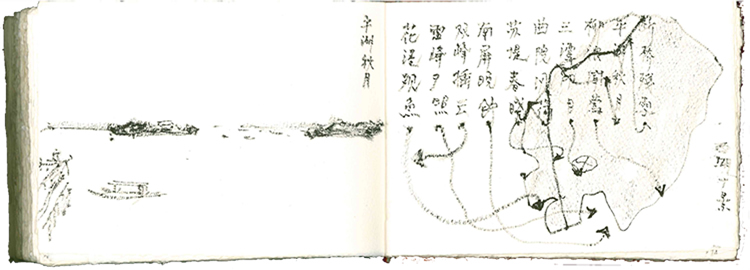 西湖十景
断桥残雪
平湖秋月
柳浪闻莺
三潭印月
曲院风荷
苏堤春晓
南屏晚钟
双峰插云
雷峰夕照
花港观鱼
平湖秋月